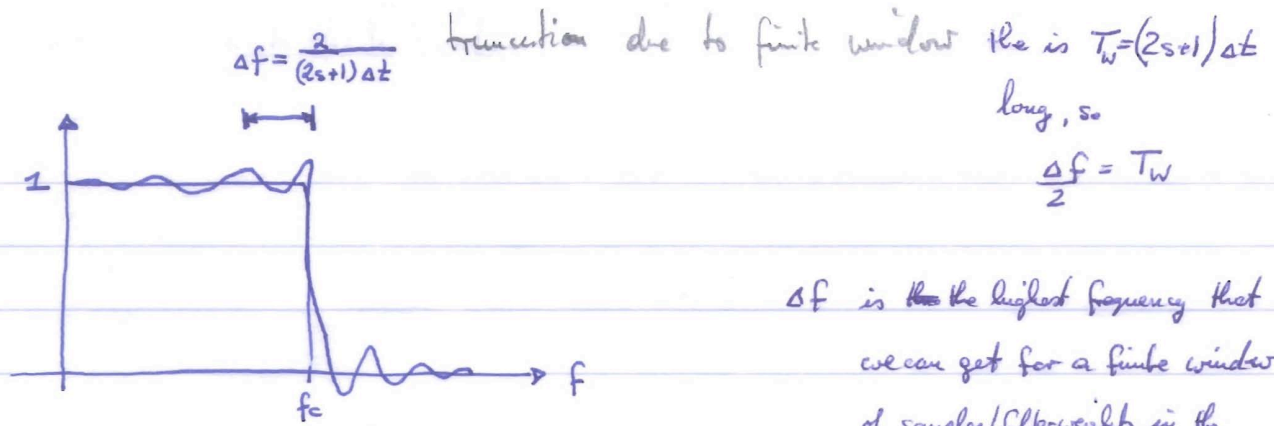 Δf = 2/((2s+1)Δt)
truncation due to finite window the is T_w=(2s+1)Δt
long, so
Δf/2 = T_w
1
Δf is the highest frequency that
we can get for a finite window
of in the
f
fc